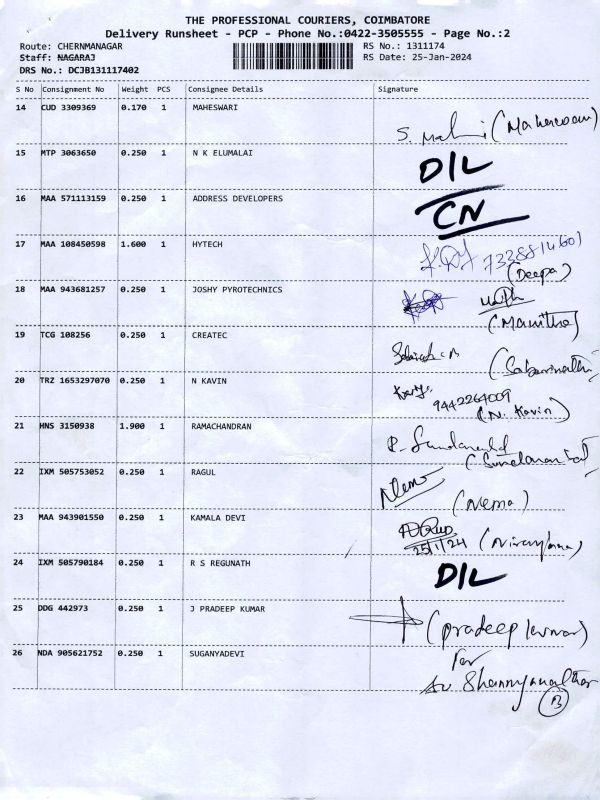 THE PROFESSIONAL COURIERS, COIMBATORE
Delivery Runsheet - PCP - Phone No.:0422-3505555 - Page No.:2
Route: CHERNMANAGAR
RS No.: 1311174
Staff: NAGARAJ
RS Date: 25-Jan-2024
DRS No.: DCJB131117402
S No Consignment No Weight PCS Consignee Details Signature
14 CUD 3309369 0.170 1 MAHESWARI
15 MTP 3063650 0.250 1 N K ELUMALAI D/L
16 MAA 571113159 0.250 1 ADDRESS DEVELOPERS CN
17 MAA 108450598 1.600 1 HYTECH
(Deepa)
18 MAA 943681257 0.250 1 JOSHY PYROTECHNICS
19 TCG 108256 0.250 1 CREATEC
20 TRZ 1653297070 0.250 1 N KAVIN
9442264009
(N. Kavin)
21 HNS 3150938 1.900 1 RAMACHANDRAN
22 IXM 505753052 0.250 1 RAGUL
(Nema)
23 MAA 943901550 0.250 1 KAMALA DEVI
25/1/24
24 IXM 505790184 0.250 1 R S REGUNATH D/L
25 DDG 442973 0.250 1 J PRADEEP KUMAR (pradeep kumar)
26 NDA 905621752 0.250 1 SUGANYADEVI for